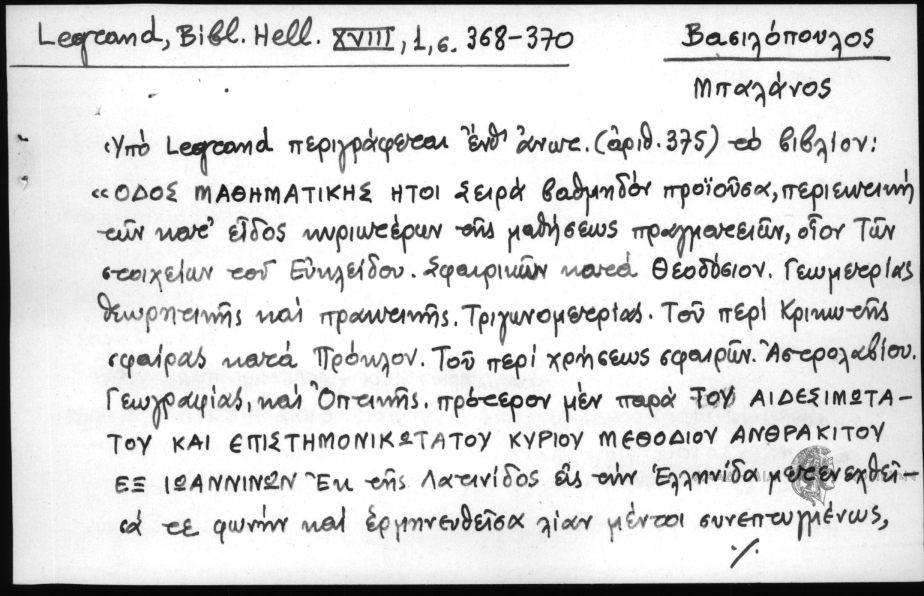 Legrand, Bibl. Hell. XVIII, 1, σ. 368-370
Βασιλόπουλος
Μπαλάνος
Ὑπό Legrand περιγράφεται ἔνθ' ἀνωτ. (ἀριθ. 375) τό βιβλίον:
«ΟΔΟΣ ΜΑΘΗΜΑΤΙΚΗΣ ΗΤΟΙ Σειρά βαθμηδόν προϊοῦσα, περιεκτική
τῶν κατ' εἶδος κυριωτέρων τῆς μαθήσεως πραγματειῶν, οἷον Τῶν
στοιχείων τοῦ Εὐκλείδου. Σφαιρικῶν κατά Θεοδόσιον. Γεωμετρίας
θεωρητικῆς καί πρακτικῆς. Τριγωνομετρίας. Τοῦ περί Κρικωτῆς
σφαίρας κατά Πρόκλον. Τοῦ περί χρήσεως σφαιρῶν. Ἀστρολαβίου.
Γεωγραφίας, καί Ὀπτικῆς. πρότερον μέν παρά ΤΟΥ ΑΙΔΕΣΙΜΩΤΑ-
ΤΟΥ ΚΑΙ ΕΠΙΣΤΗΜΟΝΙΚΩΤΑΤΟΥ ΚΥΡΙΟΥ ΜΕΘΟΔΙΟΥ ΑΝΘΡΑΚΙΤΟΥ
ΕΞ ΙΩΑΝΝΙΝΩΝ Ἐκ τῆς Λατινίδος εἰς τήν Ἑλληνίδα μετενεχθεῖ-
σά τε φωνήν καί ἑρμηνευθεῖσα λίαν μέντοι συνεπτυγμένως,
./.